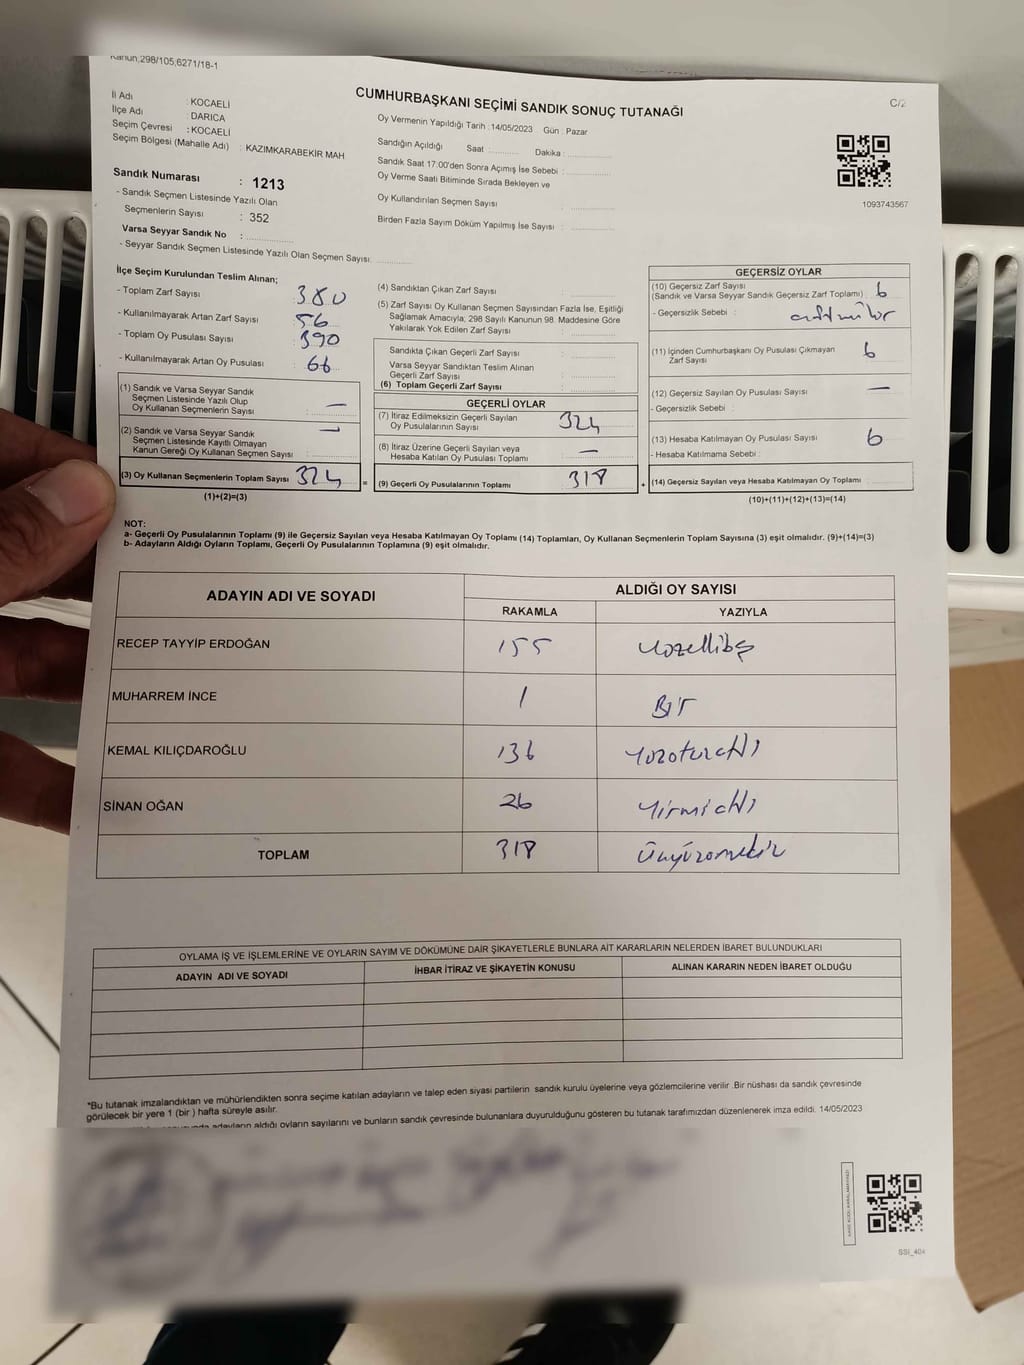 Kanun;298/105;6271/18-1
C/2
CUMHURBAŞKANI SEÇİMİ SANDIK SONUÇ TUTANAĞI
İl Adı : KOCAELİ
İlçe Adı : DARICA
Seçim Çevresi : KOCAELİ
Seçim Bölgesi (Mahalle Adı) : KAZIMKARABEKİR MAH
Sandık Numarası : 1213
- Sandık Seçmen Listesinde Yazılı Olan
Seçmenlerin Sayısı : 352
Varsa Seyyar Sandık No :
- Seyyar Sandık Seçmen Listesinde Yazılı Olan Seçmen Sayısı:
Oy Vermenin Yapıldığı Tarih : 14/05/2023 Gün : Pazar
Sandığın Açıldığı Saat Dakika :
Sandık Saat 17:00'den Sonra Açımış İse Sebebi :
Oy Verme Saati Bitiminde Sırada Bekleyen ve
Oy Kullandırılan Seçmen Sayısı :
Birden Fazla Sayım Döküm Yapılmış İse Sayısı :
1093743567
İlçe Seçim Kurulundan Teslim Alınan;
- Toplam Zarf Sayısı : 380
- Kullanılmayarak Artan Zarf Sayısı : 56
- Toplam Oy Pusulası Sayısı : 390
- Kullanılmayarak Artan Oy Pusulası : 66
(1) Sandık ve Varsa Seyyar Sandık
Seçmen Listesinde Yazılı Olup
Oy Kullanan Seçmenlerin Sayısı : —
(2) Sandık ve Varsa Seyyar Sandık
Seçmen Listesinde Kayıtlı Olmayan
Kanun Gereği Oy Kullanan Seçmen Sayısı : —
(3) Oy Kullanan Seçmenlerin Toplam Sayısı 324 =
(1)+(2)=(3)
(4) Sandıktan Çıkan Zarf Sayısı :
(5) Zarf Sayısı Oy Kullanan Seçmen Sayısından Fazla İse, Eşitliği
Sağlamak Amacıyla; 298 Sayılı Kanunun 98. Maddesine Göre
Yakılarak Yok Edilen Zarf Sayısı :
Sandıkta Çıkan Geçerli Zarf Sayısı :
Varsa Seyyar Sandıktan Teslim Alınan
Geçerli Zarf Sayısı :
(6) Toplam Geçerli Zarf Sayısı :
GEÇERLİ OYLAR
(7) İtiraz Edilmeksizin Geçerli Sayılan
Oy Pusulalarının Sayısı : 324
(8) İtiraz Üzerine Geçerli Sayılan veya
Hesaba Katılan Oy Pusulası Toplamı : —
(9) Geçerli Oy Pusulalarının Toplamı : 318 +
GEÇERSİZ OYLAR
(10) Geçersiz Zarf Sayısı
(Sandık ve Varsa Seyyar Sandık Geçersiz Zarf Toplamı) : 6
- Geçersizlik Sebebi :
(11) İçinden Cumhurbaşkanı Oy Pusulası Çıkmayan
Zarf Sayısı : 6
(12) Geçersiz Sayılan Oy Pusulası Sayısı : —
- Geçersizlik Sebebi :
(13) Hesaba Katılmayan Oy Pusulası Sayısı : 6
- Hesaba Katılmama Sebebi :
(14) Geçersiz Sayılan veya Hesaba Katılmayan Oy Toplamı
(10)+(11)+(12)+(13)=(14)
NOT:
a- Geçerli Oy Pusulalarının Toplamı (9) ile Geçersiz Sayılan veya Hesaba Katılmayan Oy Toplamı (14) Toplamları, Oy Kullanan Seçmenlerin Toplam Sayısına (3) eşit olmalıdır. (9)+(14)=(3)
b- Adayların Aldığı Oyların Toplamı, Geçerli Oy Pusulalarının Toplamına (9) eşit olmalıdır.
ADAYIN ADI VE SOYADI ALDIĞI OY SAYISI
RAKAMLA YAZIYLA
RECEP TAYYİP ERDOĞAN 155 Yüzellibeş
MUHARREM İNCE 1 BİR
KEMAL KILIÇDAROĞLU 136 Yüzotuzaltı
SİNAN OĞAN 26 Yirmialtı
TOPLAM 318 Üçyüzonsekiz
OYLAMA İŞ VE İŞLEMLERİNE VE OYLARIN SAYIM VE DÖKÜMÜNE DAİR ŞİKAYETLERLE BUNLARA AİT KARARLARIN NELERDEN İBARET BULUNDUKLARI
ADAYIN ADI VE SOYADI İHBAR İTİRAZ VE ŞİKAYETİN KONUSU ALINAN KARARIN NEDEN İBARET OLDUĞU
*Bu tutanak imzalandıktan ve mühürlendikten sonra seçime katılan adayların ve talep eden siyasi partilerin sandık kurulu üyelerine veya gözlemcilerine verilir .Bir nüshası da sandık çevresinde
görülecek bir yere 1 (bir ) hafta süreyle asılır.
adayların aldığı oyların sayılarını ve bunların sandık çevresinde bulunanlara duyurulduğunu gösteren bu tutanak tarafımızdan düzenlenerek imza edildi. 14/05/2023
SSİ_404